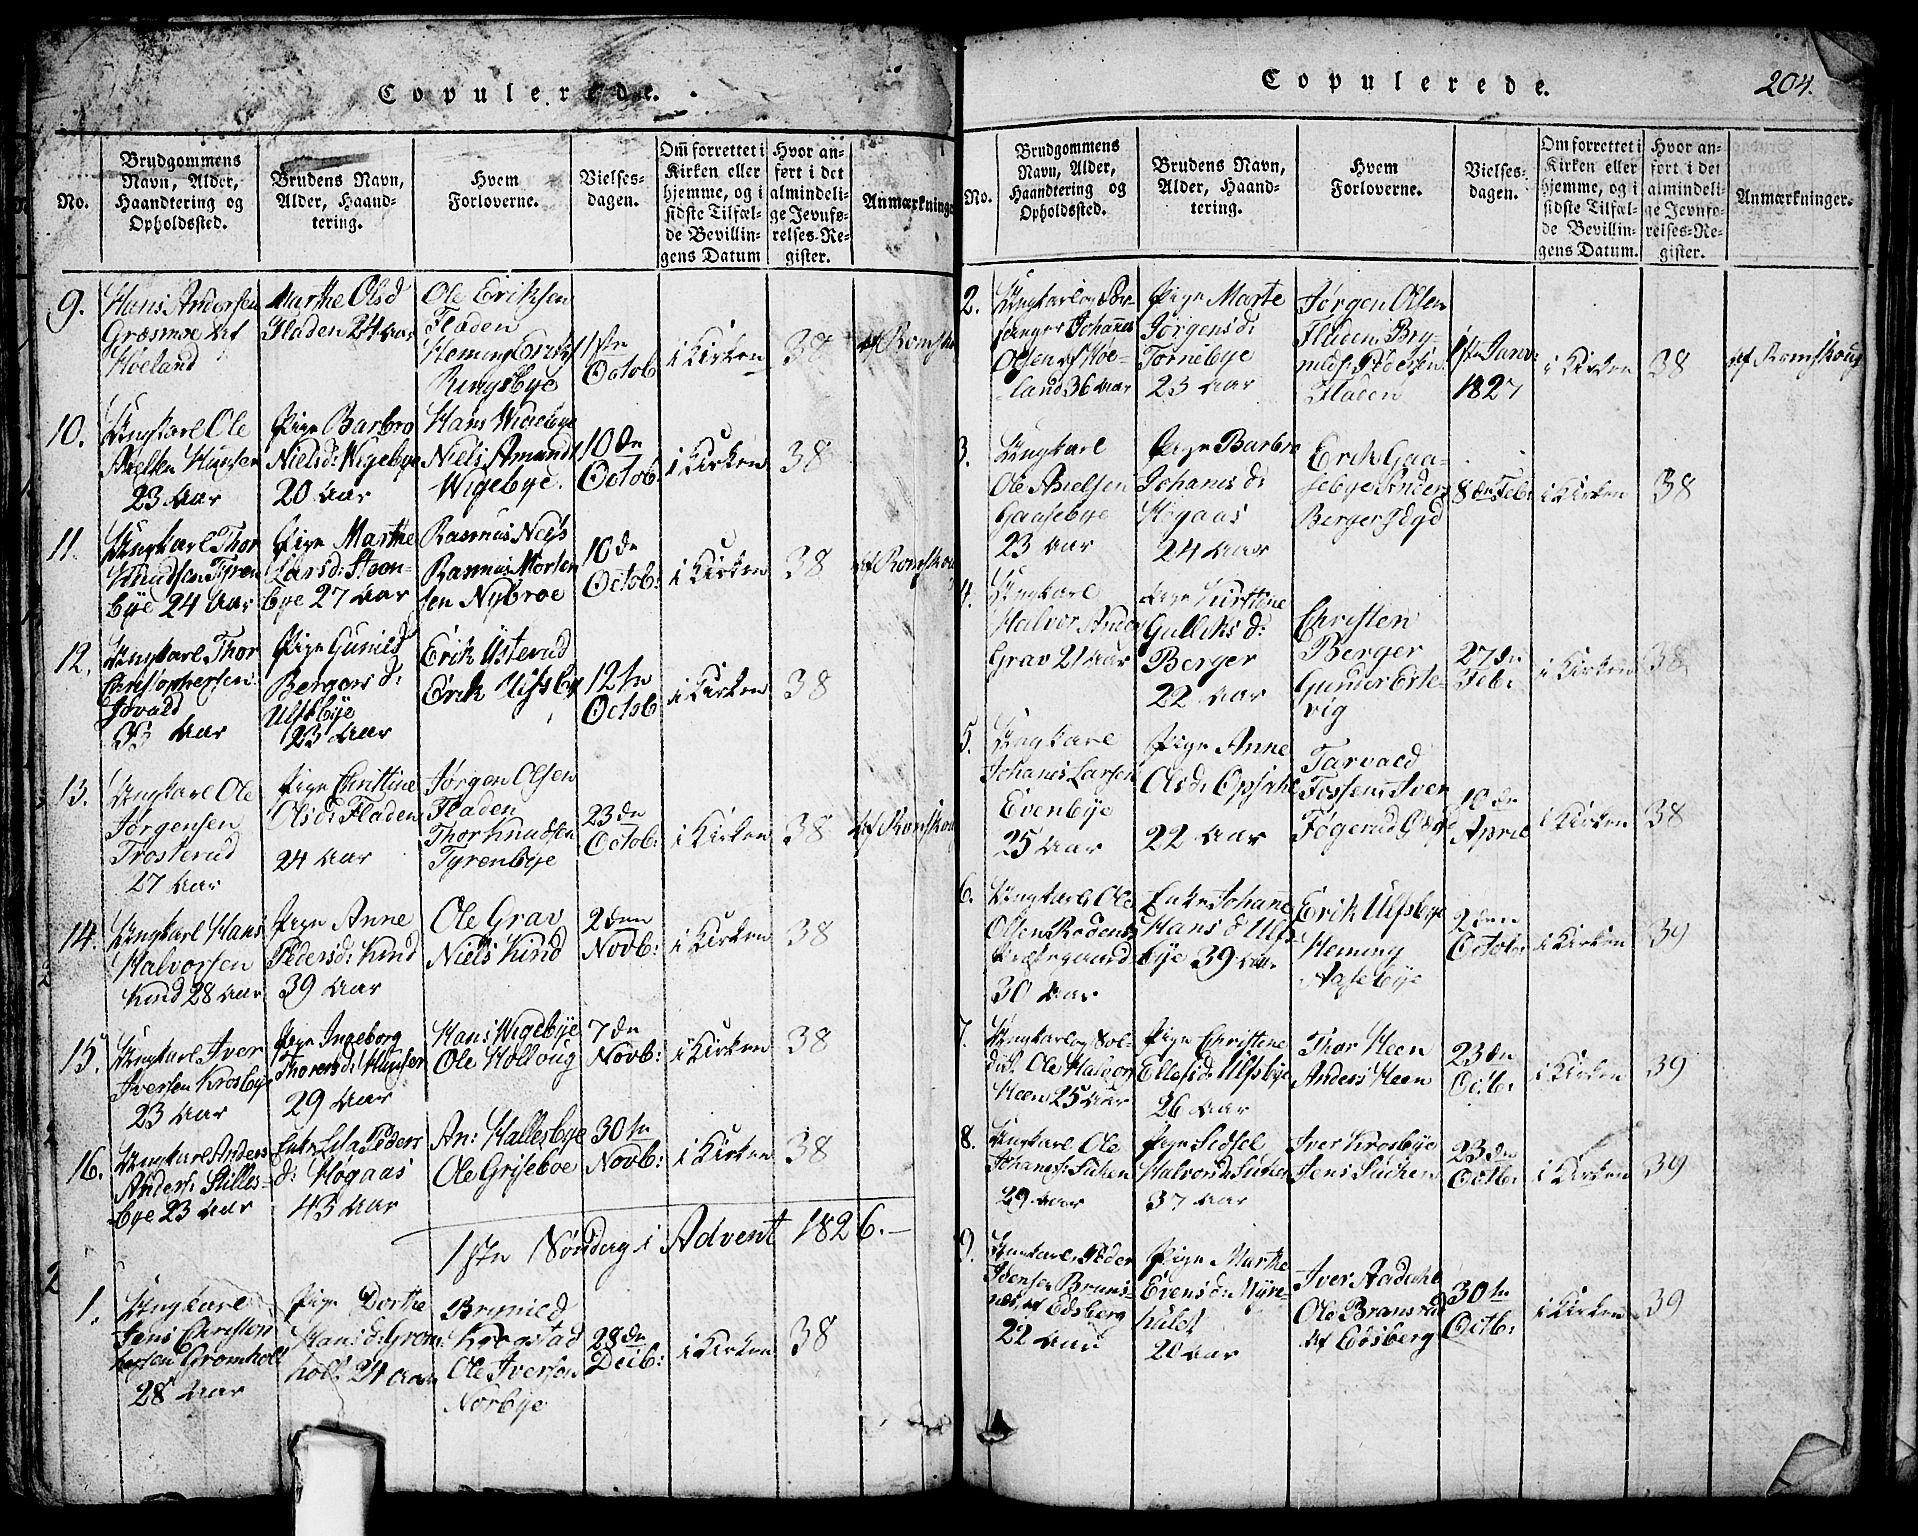 Copulerede.
No.
Brudgommens
Navn, Alder,
Haandtering og
Opholdssted.
Brudens Navn,
Alder, Haand-
tering.
Hvem
Forloverne.
Vielses-
dagen.
Om forrettet i
Kirken eller
hjemme, og i
sidste Tilfæl-
de Bevillin-
gens Datum
Hvor an-
ført i det
almindeli-
ge Jevnfø-
relses-Re-
gister.
Anmærkninger
9.
Hans Andersen
Græsmoe af
Høeland
Marthe Olsd
Fladen 24 Aar
Ole Eriksen
Fladen
Heming Eriks
Ringsbye
1ste
Octob
i Kirken
37
af Romskou
10.
Ungkarl Ole
23 Aar
Pige Barbro
Nielsd: Wigebye
20 Aar
Hans Wigebye
Niels Amunds
Wigebye.
10de
Octob:
i Kirken
38
11.
Ungkarl Thor
Knudsen Tyren
bye 24 Aar
Pige Marthe
Larsd: Steen-
bye 27 Aar
Rasmus Neÿs
Rasmus Morten
sen Nybroe
10de
Octob:
i Kirken
38
af Romskou
12.
Ungkarl Thor
Christophersen
33 Aar
Pige Gunild
Bergersd:
Ulfsbye
23 Aar
Erik Usterud
Erik Ulfsbye
12te
Octob
i Kirken
38
13.
Ungkarl Ole
Jørgensen
Trosterud
27 Aar
Pige Christine
Olsd: Fladen
24 Aar
Jørgen Olsen
Fladen
Thor Knudsen
Tyrenbye
23de
Octob:
i Kirken
38
af Romskou
14.
Ungkarl Hans
Halvorsen
Kind 28 Aar
Pige Anne
Pedersd: Kind
39 Aar
Ole Grav
Niels Kind
2den
Novb:
i Kirken
38
15.
Ungkarl Iver
Iversen Krosbye
23 Aar
Pige Ingeborg
Thoresd:
29 Aar
Hans Wigebye
Ole Holtoug
7de
Novb:
i Kirken
38
16.
Ungkarl Anders
Anders: Stilles-
bye 23 Aar
Enke Lisa Peders
d: Hogaas
43 Aar
An: Hallesbye
Ole Griseboe
30te
Novb:
i Kirken
38
1ste Søndag i Advent 1826.
1.
Ungkarl
Jens Christop
hersen Gromholt
28 Aar
Pige Dorthe
Hansd: Grom
holt 24 Aar
Brynild
Krogstad
Ole Iversen
Norbye
28de
Decb:
i Kirken
38
Copulerede.
204.
No.
Brudgommens
Navn, Alder,
Haandtering og
Opholdssted.
Brudens Navn,
Alder, Haand-
tering.
Hvem
Forloverne.
Vielses-
dagen.
Om forrettet i
Kirken eller
hjemme, og i
sidste Tilfæl-
de Bevillin-
gens Datum.
Hvor an-
ført i det
almindeli-
ge Jevnfø-
relses-Re-
gister.
Anmærkninger.
2.
Ungkarl og
Johannes
Olsen af Høe-
land 36 Aar
Pige Marte
Jørgensd:
Tornebye
23 Aar
Jørgen Olsen
Fladen, Bry-
nild Pedersen
Fladen
1ste Janv:
1827
i Kirken
38
af Romskoug
3.
Ungkarl
Ole Nielsen
Gaasebye
23 Aar
Pige Barbro
Johanisd:
Hogaas
24 Aar
Erik Gaa-
sebye Anders
Berger
8de Feb:
i Kirken
38
4.
Ungkarl
Halvor Anders
Grav 21 Aar
Pige Kirstine
Gulliksd:
Berger
22 Aar
Christen
Berger
Gunder Erte-
vig
27de
Feb:
i Kirken
38
5.
Ungkarl
Johanes Larsen
Evenbye
25 Aar
Pige Anne
Olsd: Opsahl
22 Aar
Tarvald
Fossen, Iver
Fogerud
10de
April
i Kirken
38
6.
Ungkarl Ole
Olsen Rødenes
Præstegaard
30 Aar
Enken Johanne
Hansd Ulfs-
bye 39 Aar
Erik Ulfsbye
Heming
Aasebye
2den
Octob:
i Kirken
39
7.
Ungkarl og Sol-
dat Ole Halvors
Heen 25 Aar
Pige Christine
Ellefsd: Ulfsbye
26 Aar
Thor Heen
Anders Heen
23de
Octb:
i Kirken
39
8.
Ungkarl Ole
29 Aar
Pige Sidsel
Halvorsd:
37 Aar
Iver Krosbye
Jens
23de
Octb:
i Kirken
39
9.
Ungkarl Peder
Edensen Bruns
næs, af Edsberg
22 Aar
Pige Marthe
Evensdr Myre-
hulet
20 Aar
Iver Aadahl
Ole Bransrud
af Edsberg
30te
Octb:
i Kirken
39